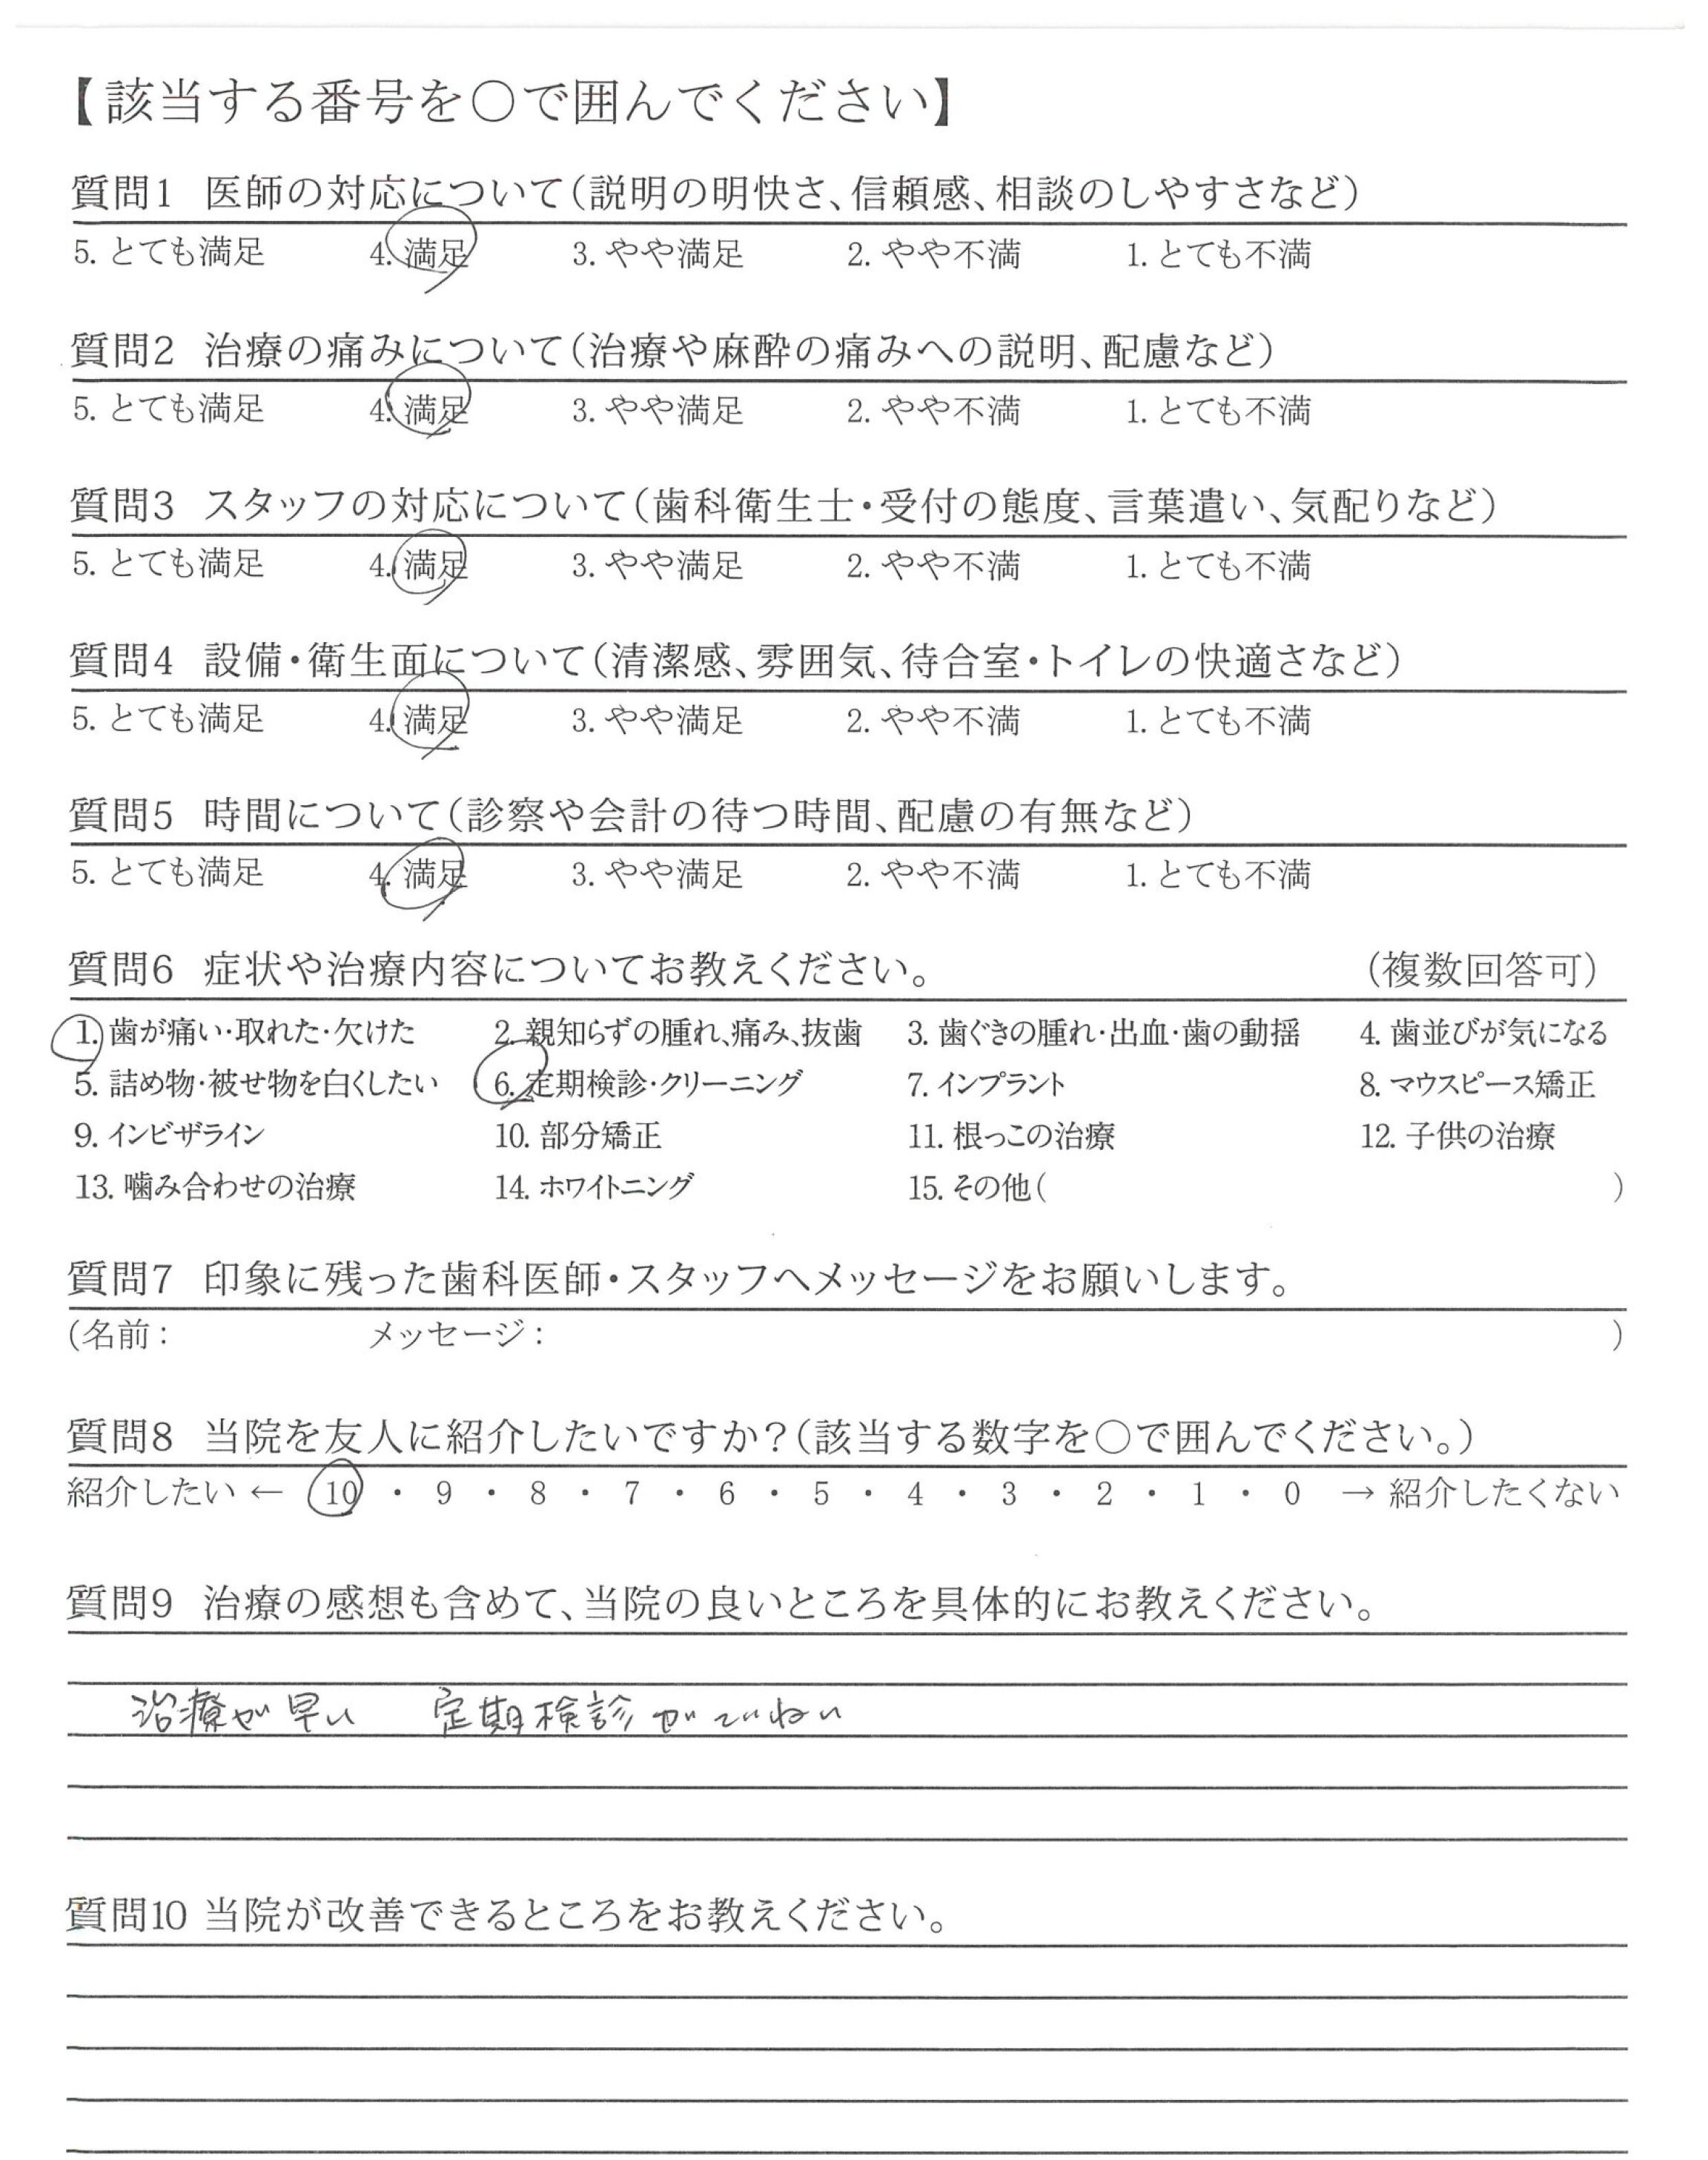 【該当する番号を○で囲んでください】
質問1 医師の対応について(説明の明快さ、信頼感、相談のしやすさなど)
5. とても満足 4. 満足 3. やや満足 2. やや不満 1. とても不満
質問2 治療の痛みについて(治療や麻酔の痛みへの説明、配慮など)
5. とても満足 4. 満足 3. やや満足 2. やや不満 1. とても不満
質問3 スタッフの対応について(歯科衛生士・受付の態度、言葉遣い、気配りなど)
5. とても満足 4. 満足 3. やや満足 2. やや不満 1. とても不満
質問4 設備・衛生面について(清潔感、雰囲気、待合室・トイレの快適さなど)
5. とても満足 4. 満足 3. やや満足 2. やや不満 1. とても不満
質問5 時間について(診察や会計の待つ時間、配慮の有無など)
5. とても満足 4. 満足 3. やや満足 2. やや不満 1. とても不満
質問6 症状や治療内容についてお教えください。 (複数回答可)
1. 歯が痛い・取れた・欠けた 2. 親知らずの腫れ、痛み、抜歯 3. 歯ぐきの腫れ・出血・歯の動揺 4. 歯並びが気になる
5. 詰め物・被せ物を白くしたい 6. 定期検診・クリーニング 7. インプラント 8. マウスピース矯正
9. インビザライン 10. 部分矯正 11. 根っこの治療 12. 子供の治療
13. 噛み合わせの治療 14. ホワイトニング 15. その他( )
質問7 印象に残った歯科医師・スタッフへメッセージをお願いします。
(名前: メッセージ: )
質問8 当院を友人に紹介したいですか?(該当する数字を○で囲んでください。)
紹介したい ← 10 ・ 9 ・ 8 ・ 7 ・ 6 ・ 5 ・ 4 ・ 3 ・ 2 ・ 1 ・ 0 → 紹介したくない
質問9 治療の感想も含めて、当院の良いところを具体的にお教えください。
治療が早い 定期検診がていねい
質問10 当院が改善できるところをお教えください。